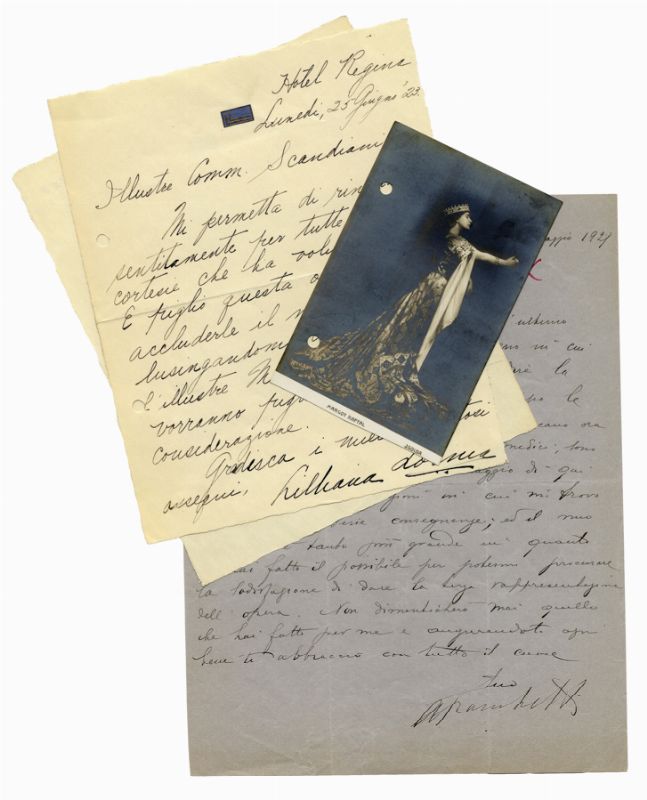 Hotel Regina
Lunedi, 25 Giugno '23
Illustre Comm. Scandiani
Mi permetta di rin
sentitamente per tutte
cortesie che ha volu
E figlio questa o
accluderle il
lusingandomi
l'illustre M
vorranno
considerazione.
Gradisca i miei
ossequi,
Lilliana
MARGOT KAFTAL
aggio 1921
ultimo
in cui
la
le
ora
medici, sono
aggio di qui
in cui mi trovo
conseguenze; ed il mio
è tanto più grande in quanto
hai fatto il possibile per potermi procurare
la sodisfazione di dare la terza rappresentazione
dell'opera. Non dimenticherò mai quello
che hai fatto per me e augurandoti ogni
bene ti abbraccio con tutto il cuore
tuo